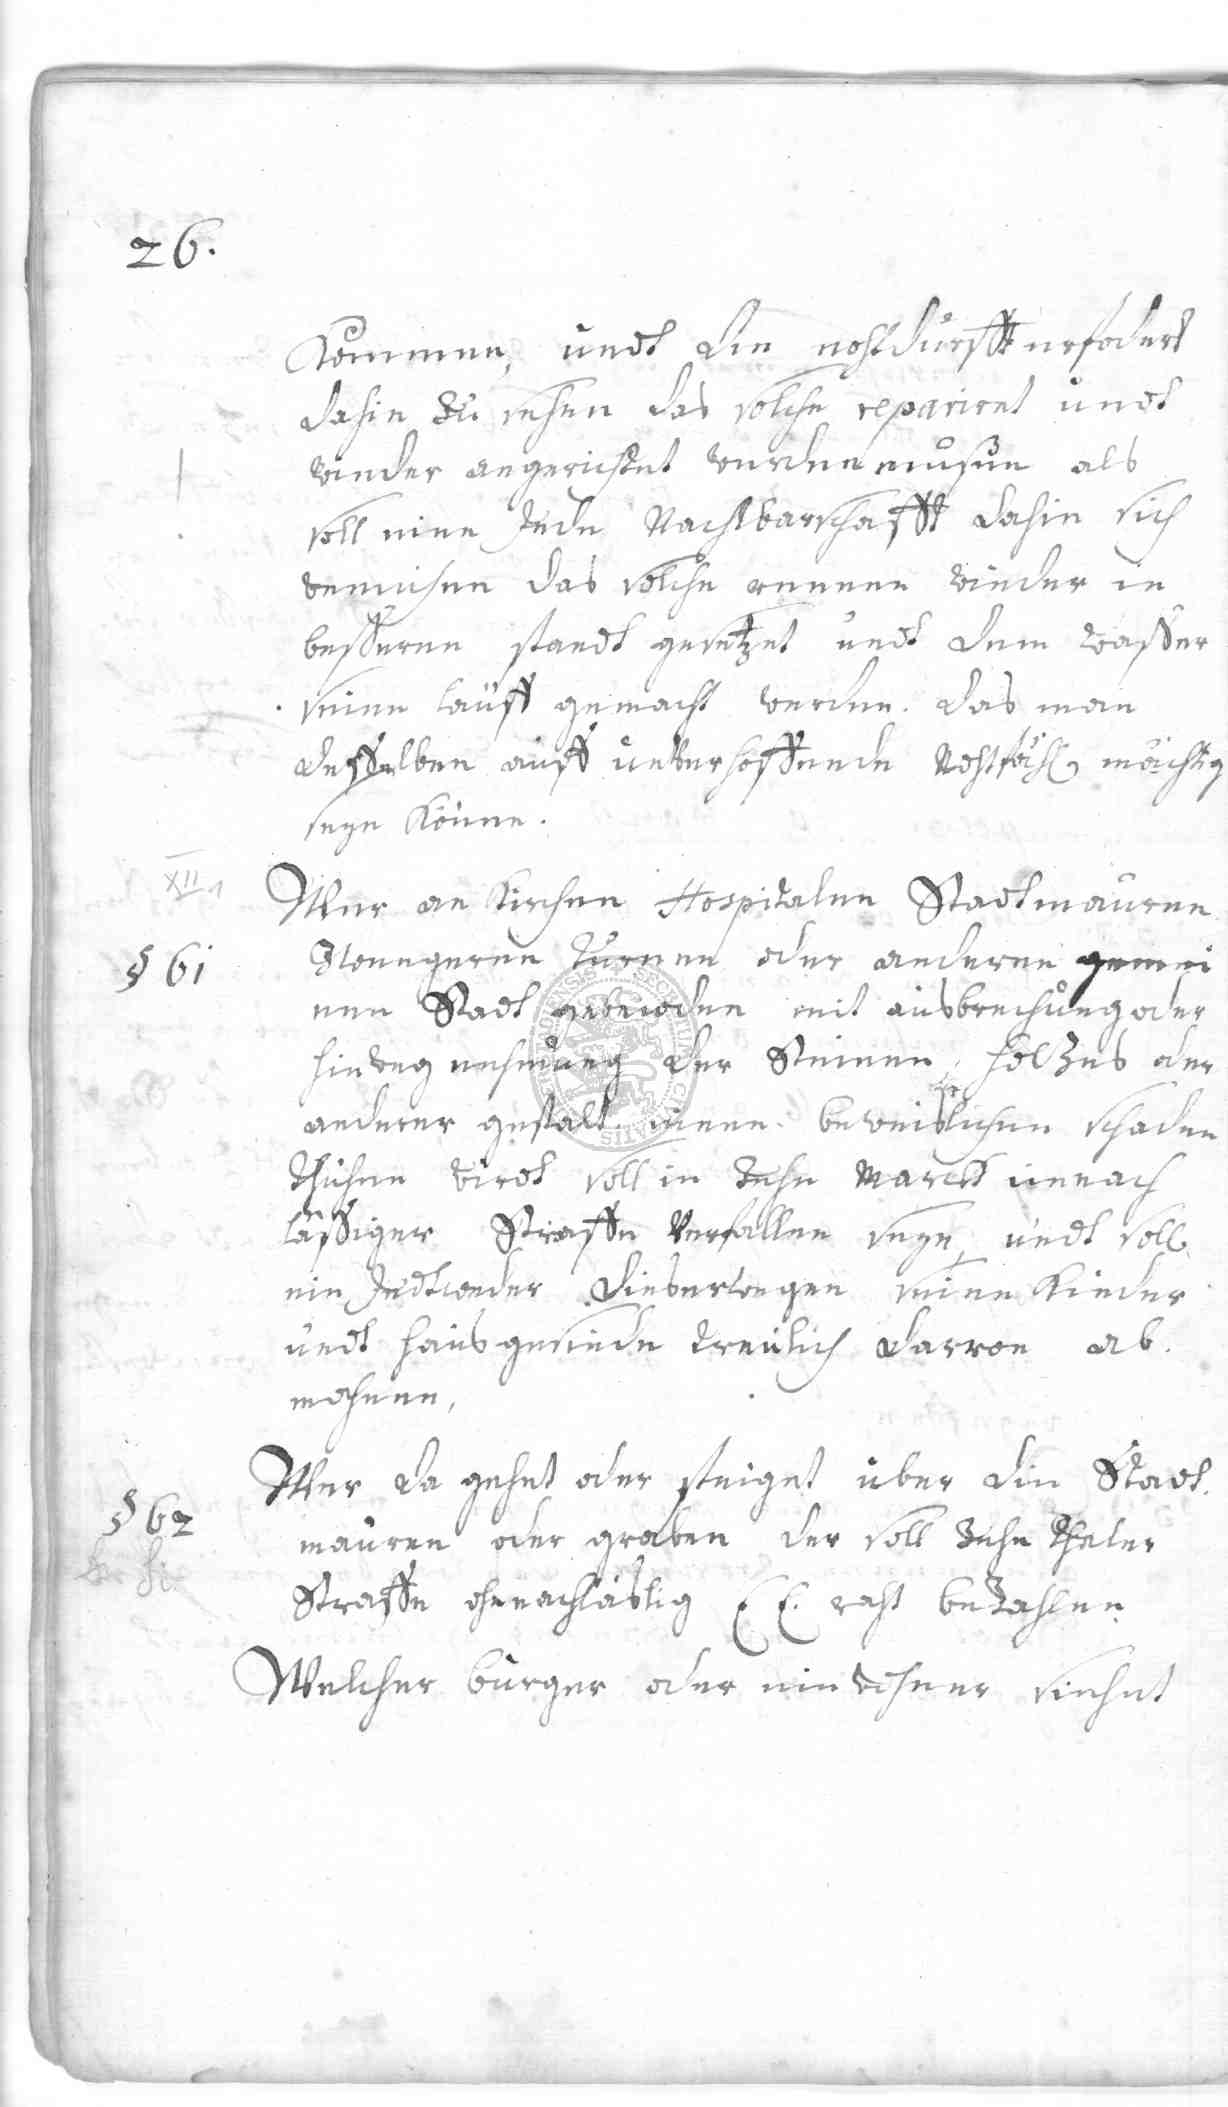 26.
Kommen, undt die nohtdurfft erfodert
dahin zu sehen das solche reparirt undt
wieder angerichtet werden müsen als
soll eine Jede Nachtbarschafft dahin sich
bemühen das solche rennen wieder in
besseren standt gesetzet undt dem wasser
seinen lauff gemacht werden. das man
desselben auff unverhoffende Nohtfähl mächtig
seyn könne.
XII
Wer an Kirchen Hospitalen Stadtmauren
§ 61
Zwengeren Turnen oder anderen gemei
nen Stadt gebewden mit ausbrechung oder
hinweg nehmung der Steinen, holzes oder
anderer gestalt einen beweislichen schaden
thuhen wirdt soll in Zehn Marck unnach
lässiger Straffe Verfallen seyn, undt soll
ein Jedtweder dieserwegen seine Kinder
undt hausgesinde treulich darvon ab
mahnen,
Wer da gehet oder steiget über die Stadt
§ 62
mauren oder graben der soll Zehn thaler
Straffe ohnnachläslig E E. raht beZahlen
Welcher burger oder einwohner siehet